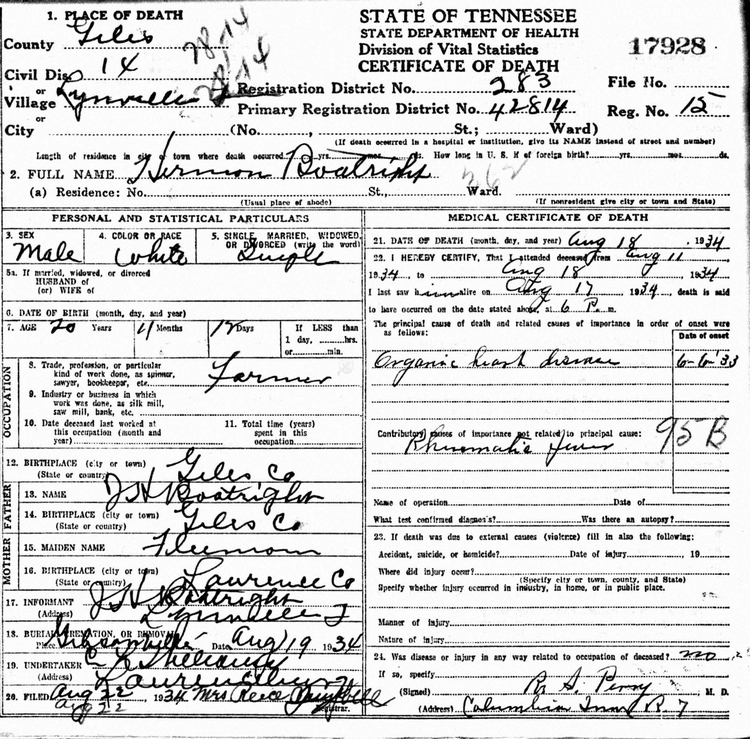 1. PLACE OF DEATH
County Giles
Civil Dis. 14
or
Village Lynnville
or
City (No. , St.; Ward)
28-14
28-14
STATE OF TENNESSEE
STATE DEPARTMENT OF HEALTH
Division of Vital Statistics
CERTIFICATE OF DEATH
17928
Registration District No. 283 File No.
Primary Registration District No. 42814 Reg. No. 15
(If death occurred in a hospital or institution, give its NAME instead of street and number)
Length of residence in city or town where death occurred yrs. mos. ds. How long in U. S. if of foreign birth? yrs. mos. ds.
2. FULL NAME Hermon Boatright
(a) Residence: No. St., Ward.
(Usual place of abode) (If nonresident give city or town and State)
PERSONAL AND STATISTICAL PARTICULARS
3. SEX 4. COLOR OR RACE 5. SINGLE, MARRIED, WIDOWED, OR DIVORCED (write the word)
Male White Single
5a. If married, widowed, or divorced
HUSBAND of
(or) WIFE of
6. DATE OF BIRTH (month, day, and year)
7. AGE 20 Years 11 Months Days If LESS than
1 day, hrs.
or min.
OCCUPATION
8. Trade, profession, or particular
kind of work done, as spinner,
sawyer, bookkeeper, etc. Farmer
9. Industry or business in which
work was done, as silk mill,
saw mill, bank, etc.
10. Date deceased last worked at
this occupation (month and
year)
11. Total time (years)
spent in this
occupation
12. BIRTHPLACE (city or town) Giles Co
(State or country)
FATHER
13. NAME J H Boatright
14. BIRTHPLACE (city or town) Giles Co
(State or country)
MOTHER
15. MAIDEN NAME
16. BIRTHPLACE (city or town) Lawrence Co
(State or country)
17. INFORMANT J H Boatright
(Address) Lynnville T
18. BURIAL, CREMATION, OR REMOVAL
Place Date Aug 19 1934
19. UNDERTAKER
(Address) Lawrenceburg
20. FILED Aug 22 1934 Mrs Reece
Aug 22 Registrar.
MEDICAL CERTIFICATE OF DEATH
21. DATE OF DEATH (month, day, and year) Aug 18, 1934
22. I HEREBY CERTIFY, That I attended deceased from Aug 11
1934, to Aug 18 1934
I last saw him alive on Aug 17 1934, death is said
to have occurred on the date stated above, at 6 P. m.
The principal cause of death and related causes of importance in order of onset were
as follows:
Date of onset
Organic heart disease 6-6-33
Contributory causes of importance not related to principal cause:
Rheumatic fever 95B
Name of operation Date of
What test confirmed diagnosis? Was there an autopsy?
23. If death was due to external causes (violence) fill in also the following:
Accident, suicide, or homicide? Date of injury , 19
Where did injury occur?
(Specify city or town, county, and State)
Specify whether injury occurred in industry, in home, or in public place.
Manner of injury
Nature of injury
24. Was disease or injury in any way related to occupation of deceased? no
If so, specify
(Signed) R. S. Perry M. D.
(Address) Columbia Tenn R 7